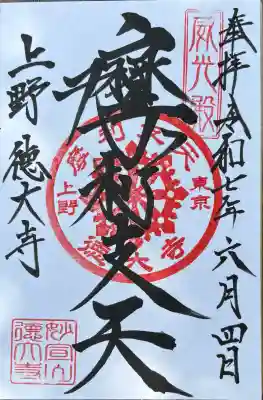 奉拝 令和七年六月四日
威光殿
摩利支天
東京
上野
徳大寺
上野 徳大寺
妙宣山
徳大寺